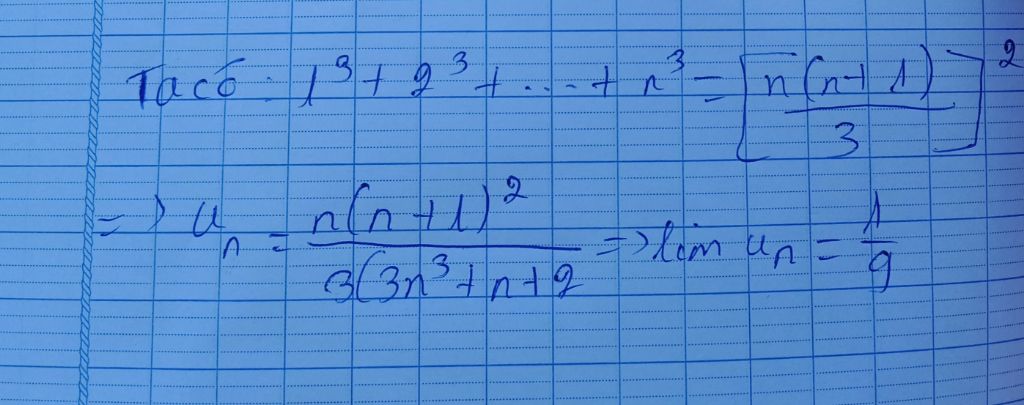 Ta có : 1³ + 2³ + ... + n³ = [n(n+1)/3]²
=> uₙ = n(n+1)²/3(3n³+n+2 => lim uₙ = 1/9